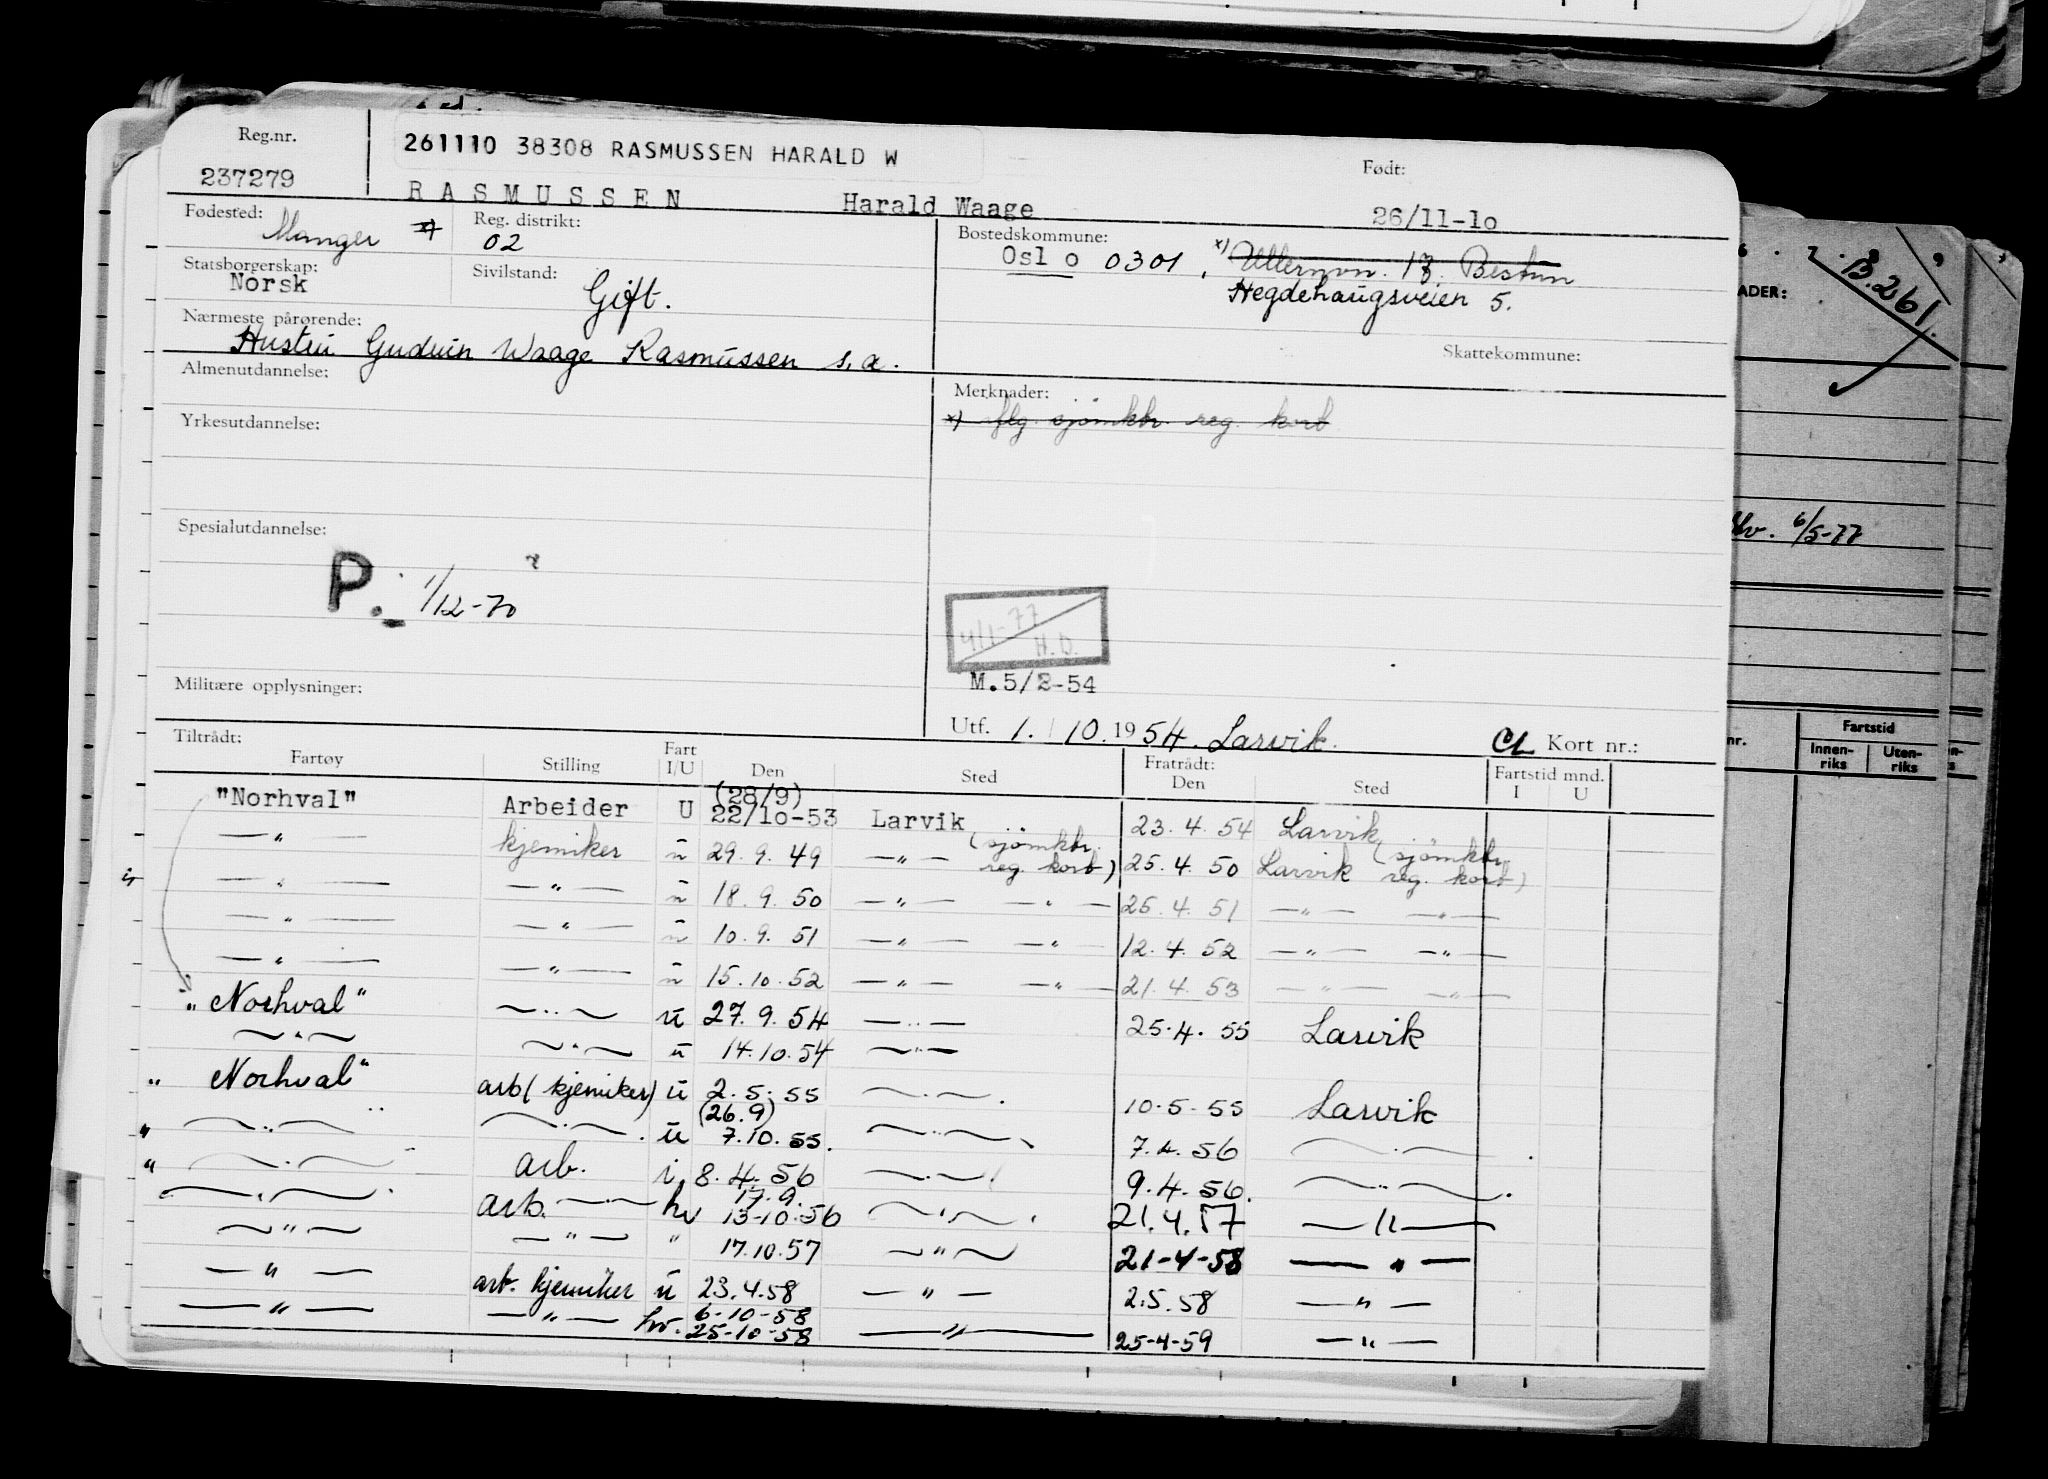 Reg.nr.
261110 38308 RASMUSSEN HARALD W
Født:
237279
RASMUSSEN Harald Waage 26/11-10
Fødested: Manger *)
Reg. distrikt: 02
Bostedskommune: Oslo 0301, *) Ullernvn. 17. Bestun
Hegdehaugsveien 5.
Statsborgerskap: Norsk
Sivilstand: Gift.
Nærmeste pårørende:
Hustru Gudrun Waage Rasmussen s.a.
Skattekommune:
Almenutdannelse:
Merknader:
*) iflg. sjömktr. reg. kort
Yrkesutdannelse:
Spesialutdannelse:
P. 1/12-70
4/1-77
H.O.
M.5/2-54
Militære opplysninger:
Utf. 1. 10. 1954. Larvik. CL Kort nr.:
Tiltrådt: Fratrådt: Fartstid mnd.
Fartøy Stilling Fart I/U Den Sted Den Sted I U
"Norhval" Arbeider U (28/9) 22/10-53 Larvik 23.4.54 Larvik
— " — kjemiker u 29.9.49 — " — (sjömktr. reg. kort) 25.4.50 Larvik (sjömktr. reg. kort)
— " — — " — u 18.9.50 — " — — " — 25.4.51 — " — — " —
— " — — " — u 10.9.51 — " — — " — 12.4.52 — " — — " —
— " — — " — u 15.10.52 — " — — " — 21.4.53 — " — — " —
"Norhval" — " — u 27.9.54 — " — 25.4.55 Larvik
— " — — " — u 14.10.54 — " —
"Norhval" arb (kjemiker) u 2.5.55 — " — 10.5.55 Larvik
" — " — — " — u (26.9) 7.10.55. — " — 7.4.56 — " —
" — " — arb. i 8.4.56 — " — 9.4.56. — " —
— " — arb. — " — hv 17.9. 13-10-56 — " — 21.4.57 — " —
— " — — " — " 17.10.57 — " — 21-4-58 — " —
— " — arb. kjemiker u 23.4.58 — " — 2.5.58 — " —
— " — — " — hv. 6-10-58 25-10-58 — " — 25-4-59 — " —
B.261.
ADER:
6/5-77
nr.
Fartstid
Innenriks
Utenriks